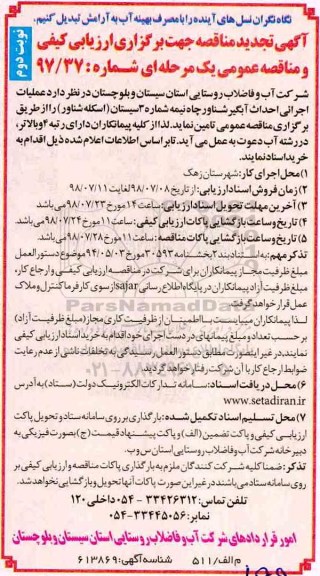 نگاه نگران نسل های آینده را با مصرف بهینه آب به آرامش تبدیل کنیم.
نوبت دوم
آگهی تجدید مناقصه جهت برگزاری ارزیابی کیفی
و مناقصه عمومی یک مرحله ای شماره: ۹۷/۳۷
شرکت آب و فاضلاب روستایی استان سیستان و بلوچستان در نظر دارد عملیات
اجرائی احداث آبگیر شناور چاه نیمه شماره ۳ سیستان (اسکله شناور) را از طریق
برگزاری مناقصه عمومی تامین نماید. لذا از کلیه پیمانکاران دارای رتبه ۲ و بالاتر،
در رشته آب دعوت به عمل می آید. تا بر اساس اطلاعات اعلام شده ذیل اقدام به
خرید اسناد نمایند.
۱) محل اجرای کار: شهرستان زهک
۲) زمان فروش اسناد ارزیابی: از تاریخ ۹۸/۰۷/۰۸ لغایت ۹۸/۰۷/۱۱
۳) آخرین مهلت تحویل اسناد ارزیابی: ساعت ۱۴ مورخ ۹۸/۰۷/۲۳ می باشد.
۴) تاریخ و ساعت بازگشایی پاکات ارزیابی کیفی: ساعت ۱۱ مورخ ۹۸/۰۷/۲۴ می باشد.
۵) تاریخ و ساعت بازگشایی پاکات مناقصه: ساعت ۱۱ مورخ ۹۸/۰۷/۲۸ می باشد.
تذکر مهم: به استناد بند ۲ بخشنامه ۳۰۵۹۳ مورخ ۹۴/۰۵/۰۳ موضوع دستورالعمل
مبلغ ظرفیت مجاز پیمانکاران برای شرکت در مناقصه ارزیابی کیفی و ارجاع کار،
مبلغ ظرفیت آزاد پیمانکاران در پایگاه اطلاع رسانی sajar از سوی کارفرما کنترل و ملاک
عمل قرار خواهد گرفت.
لذا پیمانکاران میبایست با اطمینان از ظرفیت کاری مجاز (مبلغ ظرفیت آزاد)
بر حسب تعداد و مبلغ پیمانهای در دست اجرای خود اقدام به خرید اسناد ارزیابی کیفی
نمایند، در غیر اینصورت مطابق دستورالعمل رسیدگی به تخلفات ناشی از عدم رعایت
ضوابط ارجاع کار با آن شرکت رفتار خواهد گردید.
۶) محل دریافت اسناد: سامانه تدارکات الکترونیک دولت (ستاد) به آدرس
www.setadiran.ir
۷) محل تسلیم اسناد تکمیل شده: بارگذاری بر روی سامانه ستاد و تحویل پاکت
ارزیابی کیفی و پاکت تضمین (الف) و پاکت پیشنهاد قیمت (ج) بصورت فیزیکی به
دبیرخانه شرکت آب و فاضلاب روستایی استان س و ب.
تذکر: ضمنا کلیه شرکت کنندگان ملزم به بارگذاری پاکات مناقصه و ارزیابی کیفی بر
روی سامانه ستاد می باشند در غیر این صورت پاکات آنها تحویل و بازگشایی نخواهد شد.
تلفن تماس: ۳۳۴۲۶۳۱۲ - ۰۵۴ داخلی ۱۲۰
نمابر: ۳۳۴۴۵۰۵۶ - ۰۵۴
امور قراردادهای شرکت آب و فاضلاب روستایی استان سیستان و بلوچستان
م الف/ ۵۱۱
شناسه آگهی: ۶۱۳۸۶۹